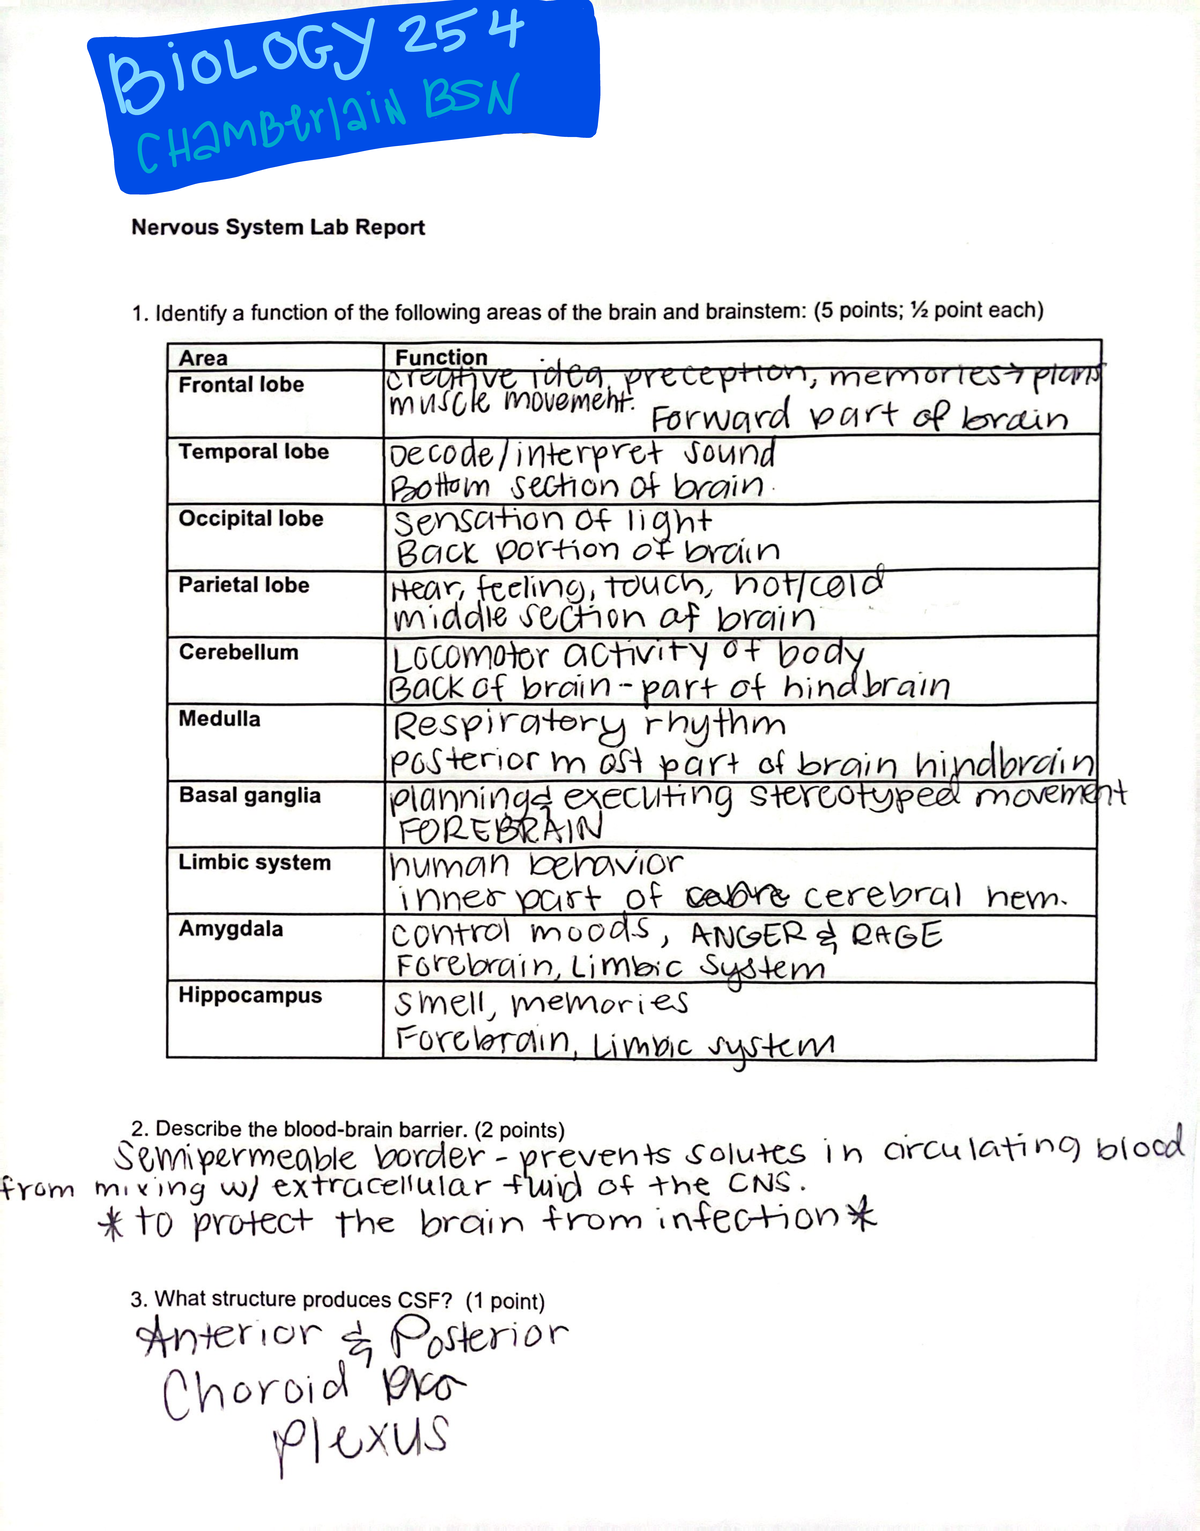 BioLOGY 254
CHamBerlaiN BSN
Nervous System Lab Report
1. Identify a function of the following areas of the brain and brainstem: (5 points; ½ point each)
Area Function
Frontal lobe creative idea, preception, memories → plans
muscle movement. Forward part of brain
Temporal lobe Decode/interpret sound
Bottom section of brain.
Occipital lobe sensation of light
Back portion of brain
Parietal lobe Hear, feeling, touch, hot/cold
middle section of brain
Cerebellum Locomotor activity of body
Back of brain - part of hindbrain
Medulla Respiratory rhythm
posterior most part of brain hindbrain
Basal ganglia planning & executing stereotyped movement
FOREBRAIN
Limbic system human behavior
inner part of cerebral hem.
Amygdala control moods, ANGER & RAGE
Forebrain, Limbic System
Hippocampus smell, memories
Forebrain, Limbic system
2. Describe the blood-brain barrier. (2 points)
Semipermeable border - prevents solutes in circulating blood
from mixing w/ extracellular fluid of the CNS.
* to protect the brain from infection *
3. What structure produces CSF? (1 point)
Anterior & Posterior
Choroid
plexus